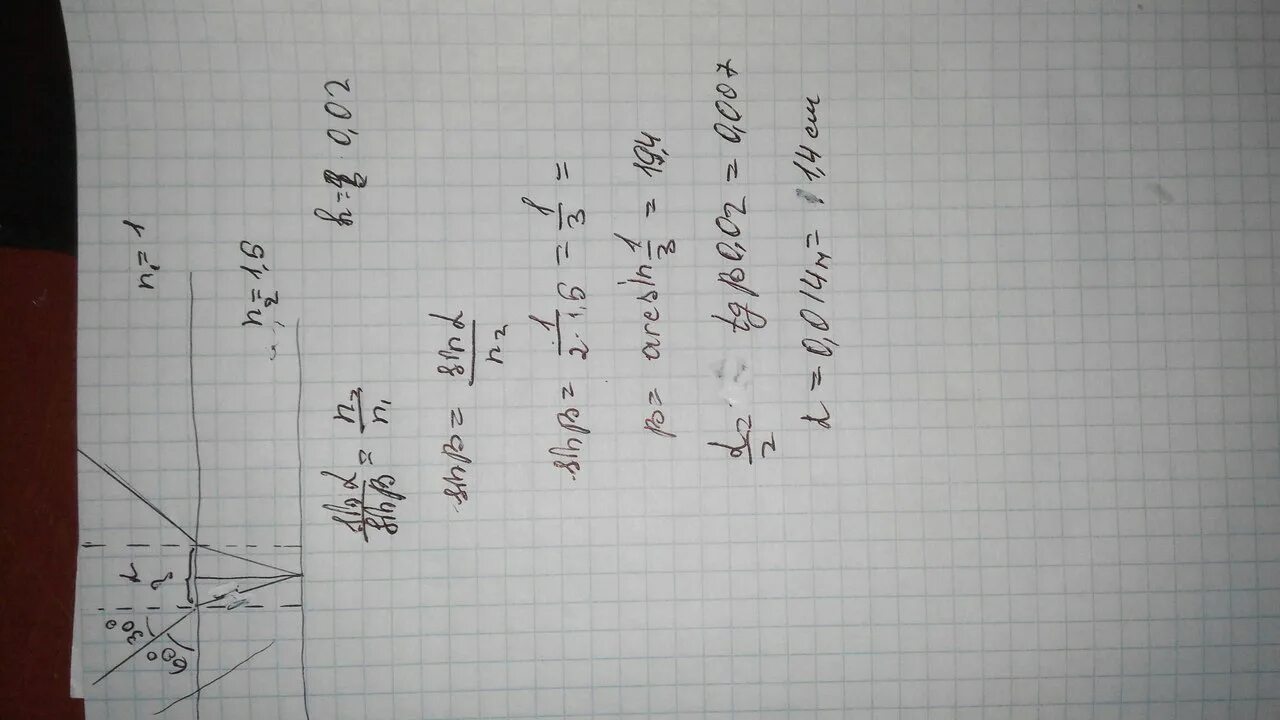 30°
60°
L
n₁ = 1
n₂ = 1,5
sinα/sinβ = n₂/n₁
sinβ = sinα/n₂
sinβ = 1/(2·1,5) = 1/3 =
β = arcsin 1/3 = 19,4
L/2 = tg β 0,02 = 0,007
L = 0,014 м = 1,4 см